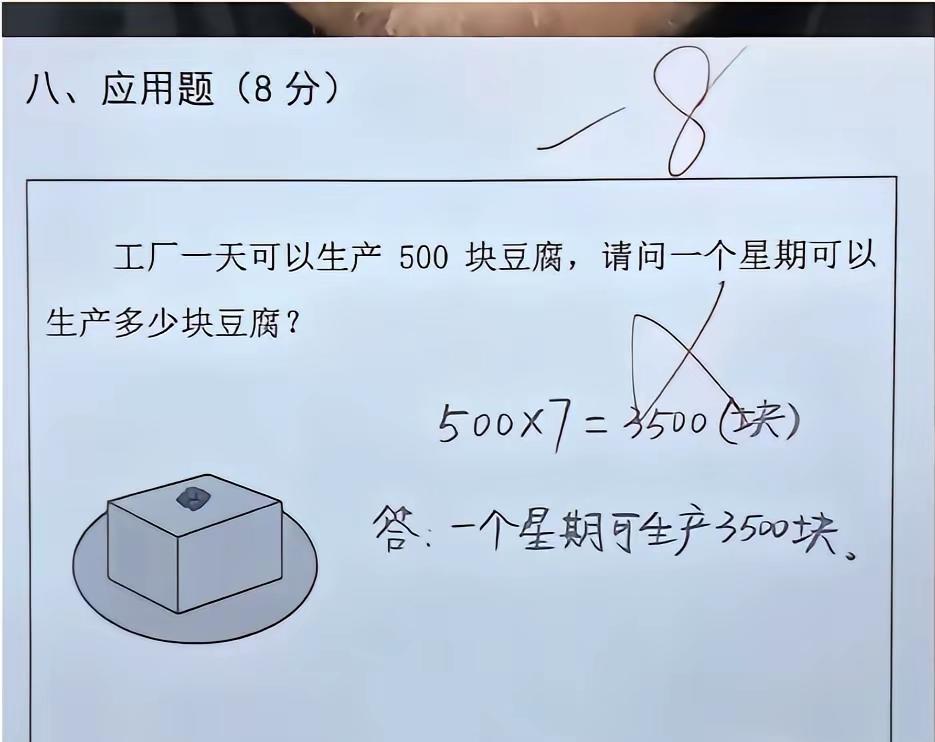 八、应用题（8 分）
-8
工厂一天可以生产 500 块豆腐，请问一个星期可以
生产多少块豆腐？
500×7=3500(块)
答：一个星期可生产3500块。